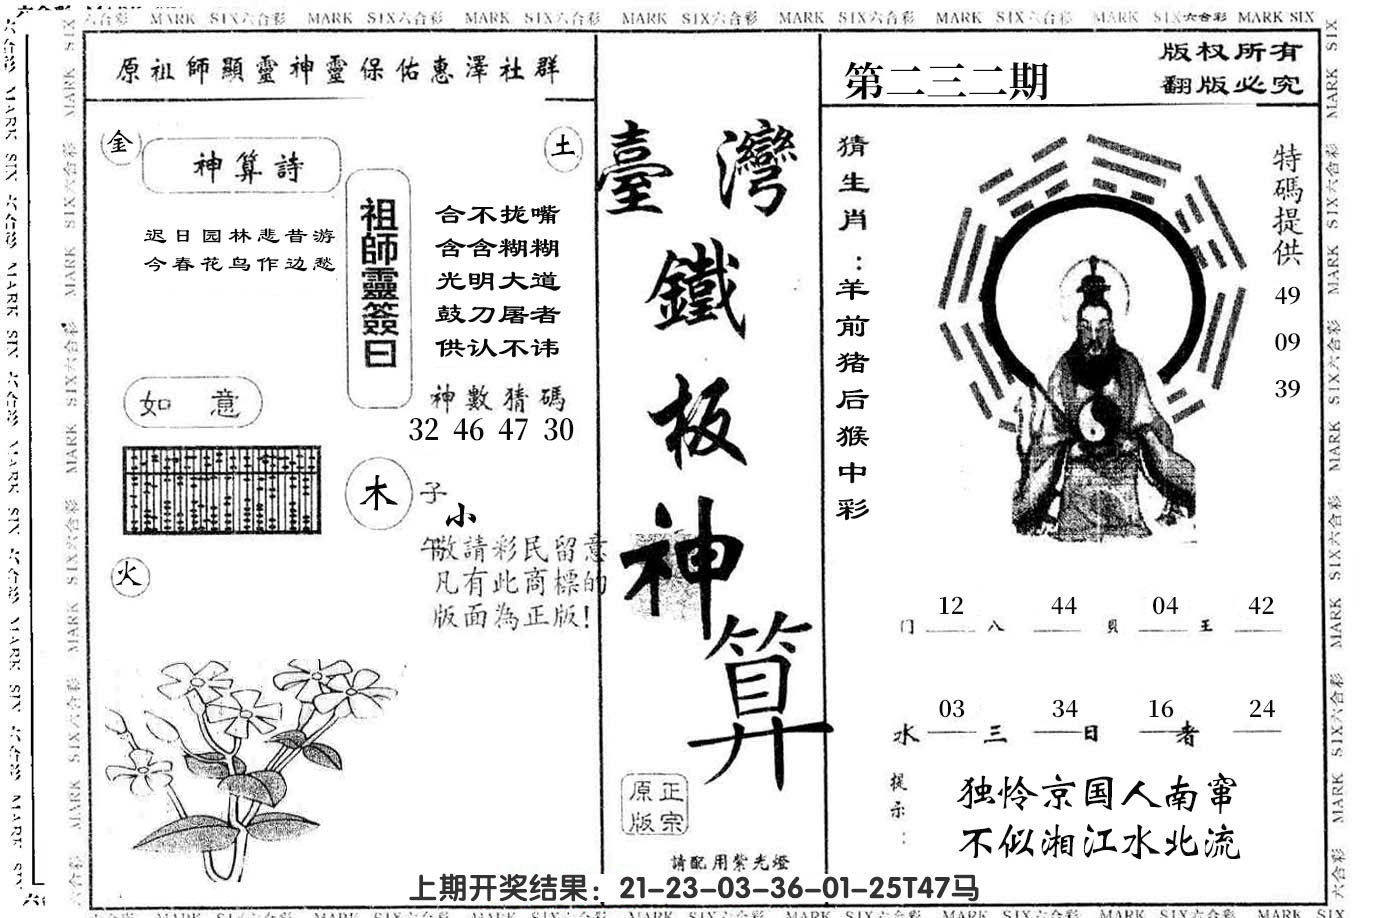 MARK SIX六合彩 MARK SIX六合彩 MARK SIX六合彩 MARK SIX六合彩 MARK SIX六合彩 MARK SIX六合彩 MARK SIX六合彩 MARK SIX
原祖師顯靈神靈保佑惠澤社群
金
神算詩
土
迟日园林悲昔游
今春花鸟作边愁
祖師靈簽曰
合不拢嘴
含含糊糊
光明大道
鼓刀屠者
供认不讳
如意
神數猜碼
32 46 47 30
木
子
小
午
火
敬請彩民留意
凡有此商標的
版面為正版!
臺灣
鐵
板
神
算
原正
版宗
請配用紫光燈
第二三二期
版权所有
翻版必究
猜生肖:羊前猪后猴中彩
特碼提供
49
09
39
门 12 八 44 貝 04 王 42
水 03 三 34 日 16 者 24
提示:
独怜京国人南窜
不似湘江水北流
上期开奖结果：21-23-03-36-01-25T47马